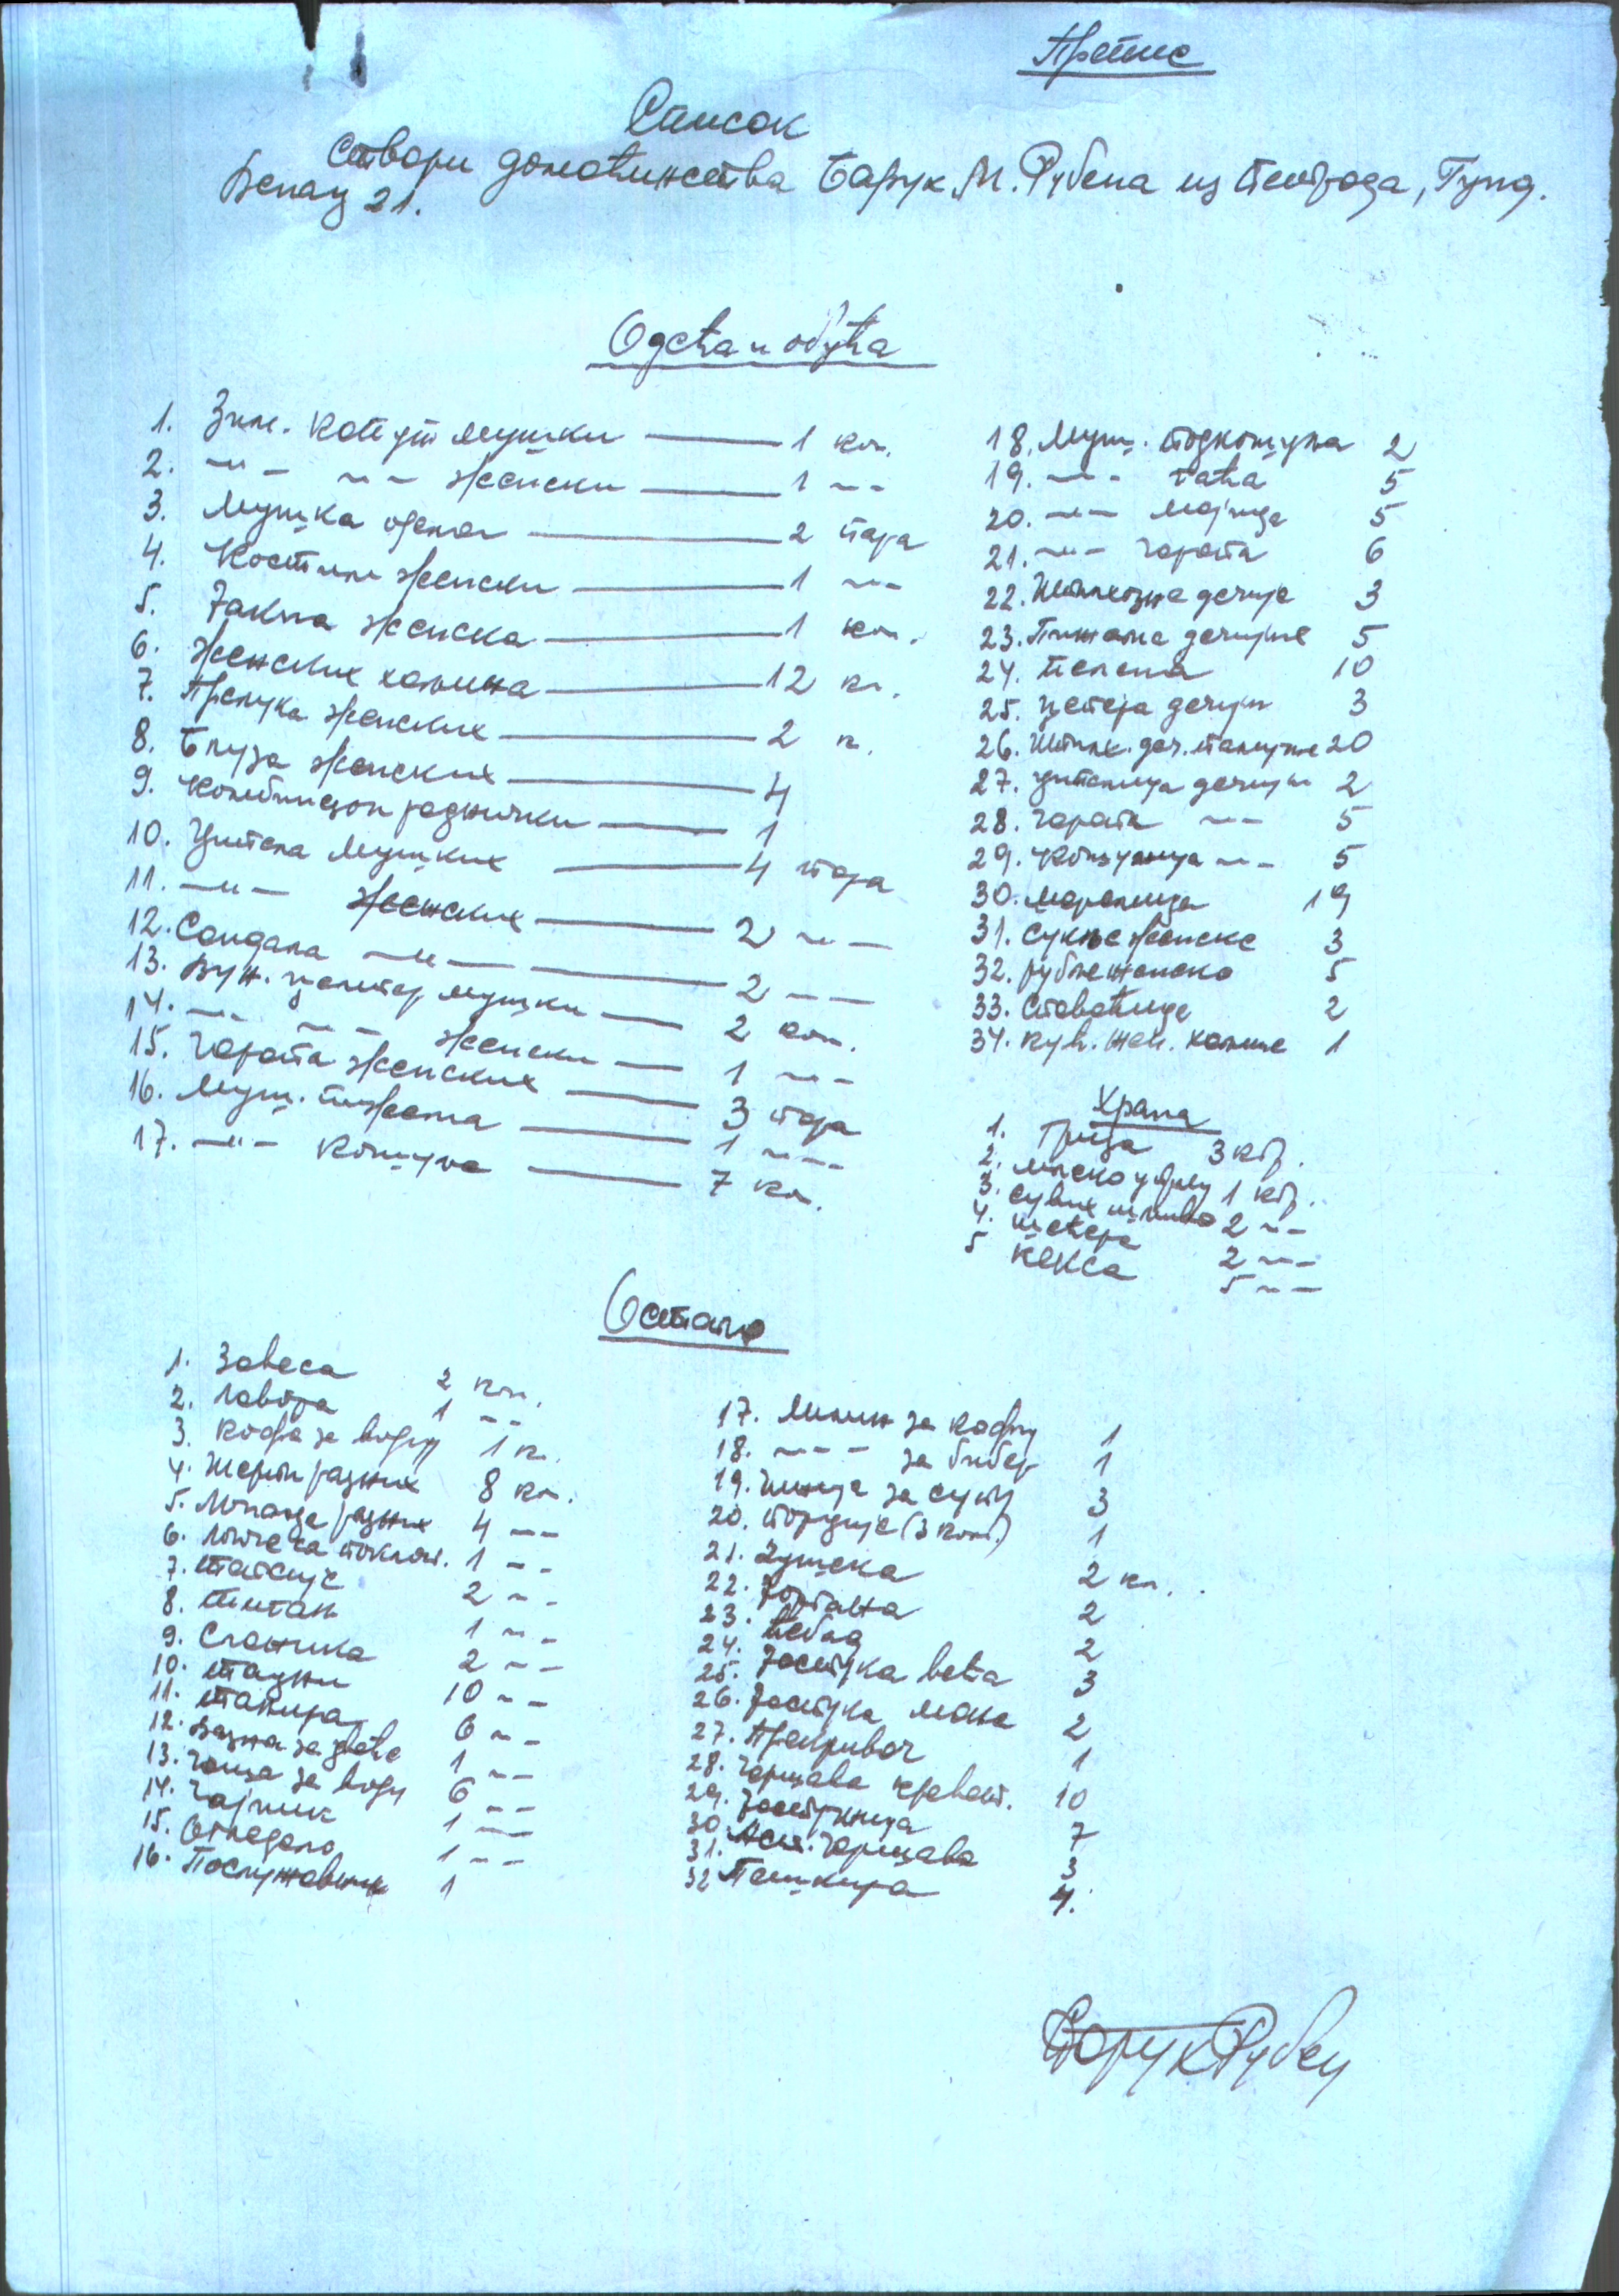 Препис
Списак
ствари домаћинства Барух М. Рубена из Београда, Гунд.
Венац 21.
Одећа и обућа
1. Зим. капут мушки — 1 ком.
2. -"- -"- женски — 1 -"-
3. Мушка одела — 2 пара
4. Костим женски — 1 -"-
5. Јакна женска — 1 ком.
6. Женских хаљина — 12 к.
7. Прслука женских — 2 к.
8. Блуза женских — 4
9. Комбинизон раднички — 1
10. Ципела мушких — 4 пара
11. -"- женских — 2 -"-
12. Сандала -"- — 2 -"-
13. Вун. џемпер мушки — 2 ком.
14. -"- -"- женски — 1 -"-
15. Чарапа женских — 3 пара
16. Муш. пижама — 1 -"-
17. -"- кошуља — 7 ком.
18. Муш. подкошуља 2
19. -"- гаћа 5
20. -"- мајица 5
21. -"- чарапа 6
22. дечије 3
23. Пижаме дечије 5
24. Пелена 10
25. Џемпера дечијих 3
26. Штрик. деч. 20
27. Ципелица дечијих 2
28. Чарапа -"- 5
29. Кошуљица -"- 5
30. Марамица 19
31. Сукње женске 3
32. Рубље женско 5
33. Спаваћице 2
34. Кућ. жен. хаљине 1
Храна
1. Гриза 3 кгр.
2. Млеко у праху 1 кгр.
3. Сувих шљива 2 -"-
4. Шећера 2 -"-
5 Кекса 5 -"-
Остало
1. Завеса 2 ком.
2. Лавора 1 -"-
3. Кофа за воду 1 к.
4. Шерпи разних 8 ком.
5. Лонаца разних 4 -"-
6. Лонче са поклоп. 1 -"-
7. Тепсије 2 -"-
8. 1 -"-
9. Сланика 2 -"-
10. 10 -"-
11. Тањира 6 -"-
12. Вазна за цвеће 1 -"-
13. Чаша за воду 6 -"-
14. Чајник 1 -"-
15. Огледало 1 -"-
16. Послужавник 1
17. Млин за кафу 1
18. -"- за бибер 1
19. за супу 3
20. (3 ком.) 1
21. Душека 2 ком.
22. Јоргана 2
23. Ћебад 2
24. Јастука већа 3
25. Јастука мања 2
26.
27. Прекривач 1
28. Чаршава кревет. 10
29. Јастучница 7
30.
31. Чаршава 3
32 Пешкира 4.
Барух Рубен